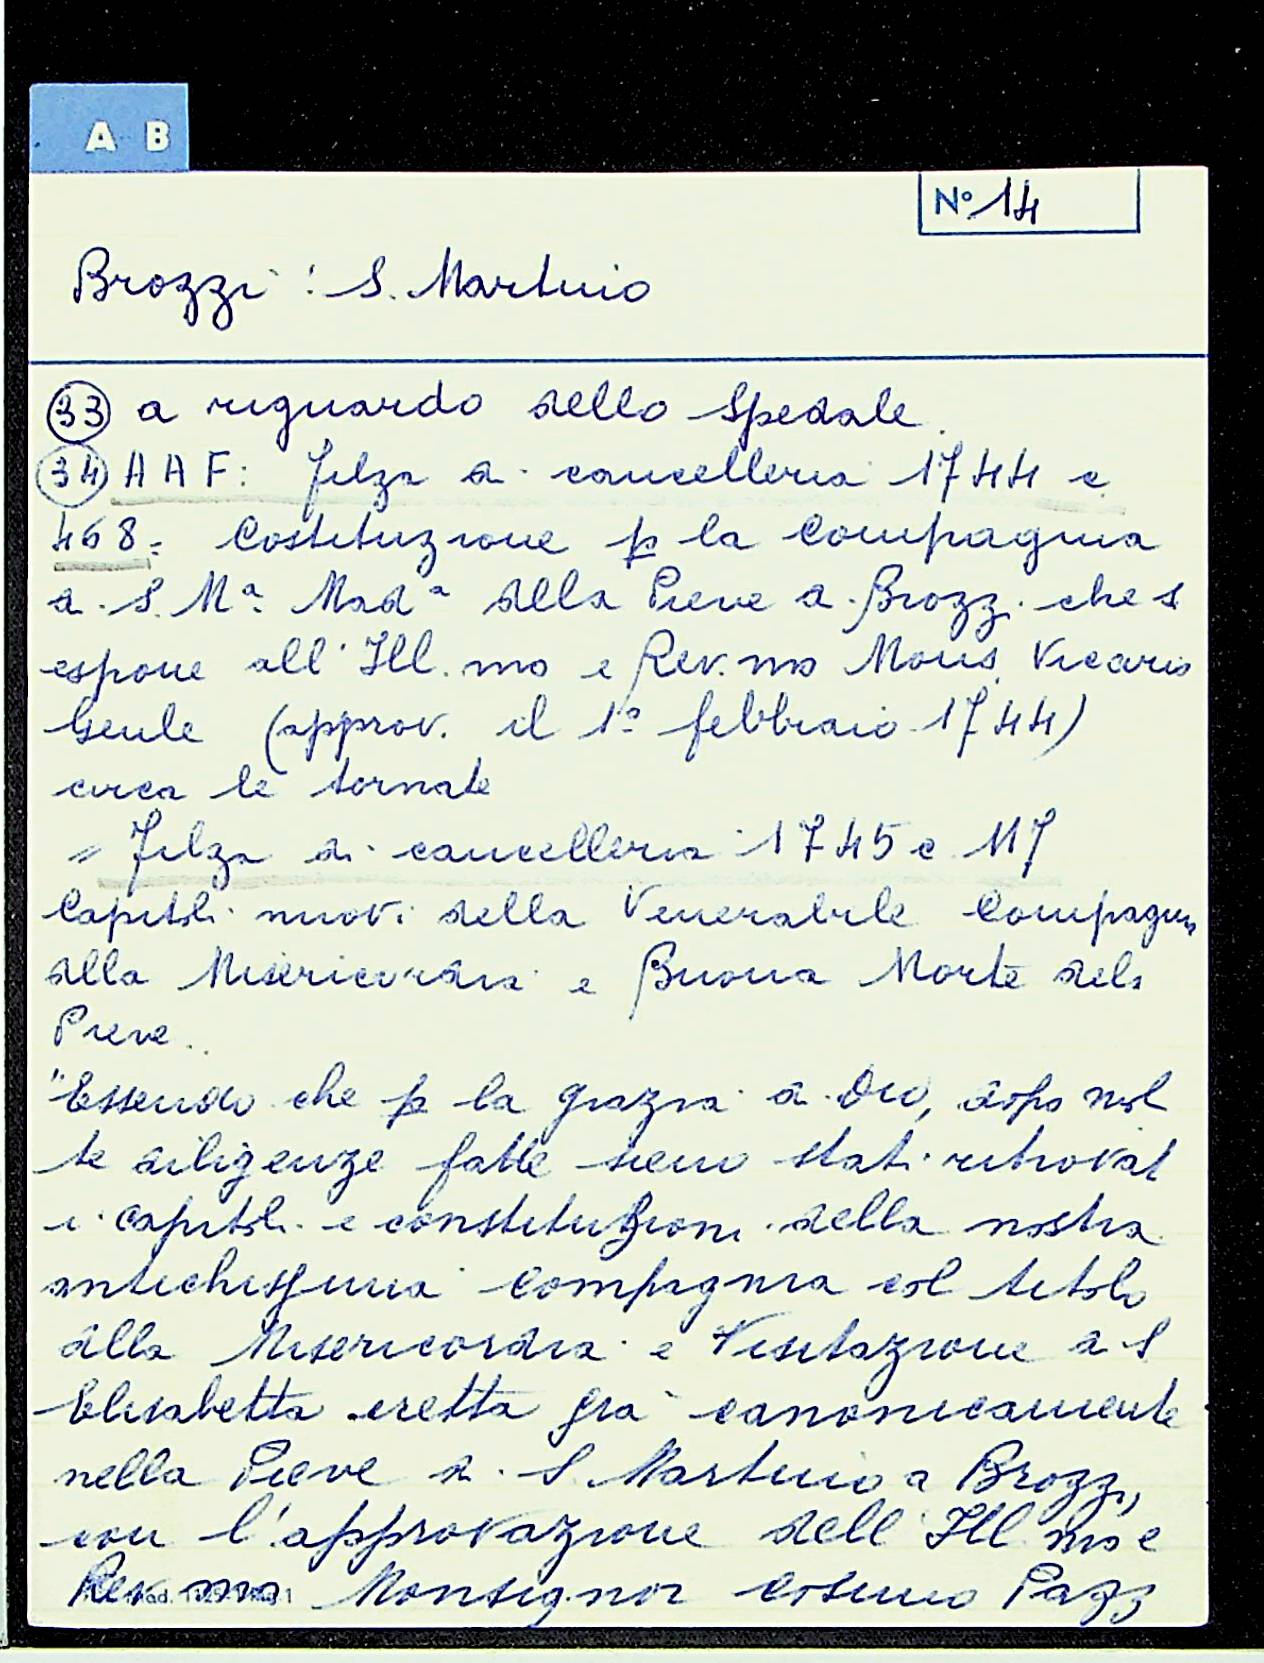 A B
N° 14
Brozzi: S. Martino
33 a riguardo dello Spedale.
34 AAF: Filza di cancelleria 1744 c
468: Costituzione p la Compagnia
di S. Mª Madª della Pieve di Brozzi che s
espone all'Ill.mo e Rev.mo Mons. Vicario
Genle (approv. il 1º febbraio 1744)
circa le tornate
" Filza di cancelleria 1745 c 117
Capitoli nuovi della Venerabile Compagnia
della Misericordia e Buona Morte della
Pieve.
"Essendo che p la grazia di Dio, dopo mol
te diligenze fatte sieno stati ritrovati
i capitoli e constituzioni della nostra
antichissima Compagnia col titolo
della Misericordia e Visitazione di S
Elisabetta eretta già canonicamente
nella Pieve di S Martino a Brozzi,
con l'approvazione dell'Ill mo e
Rev mo Monsignor Cosimo Pazzi